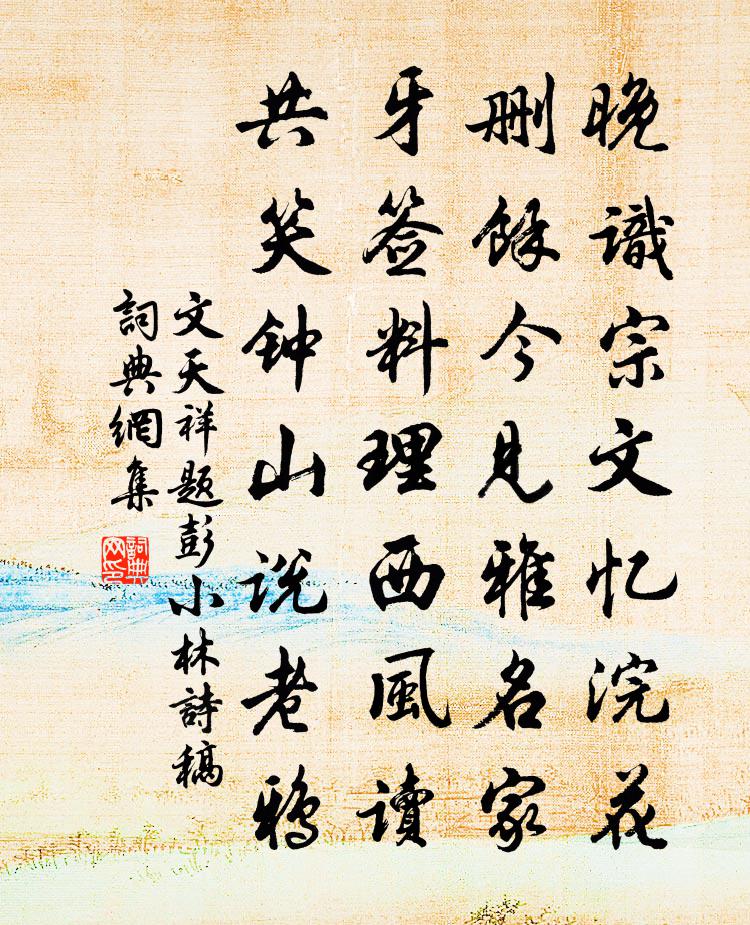 晚識宗文忆浣花
删餘今見雅名家
牙签料理西風读
共笑钟山说老鸦
文天祥題彭小林詩稿
詞典網集
詞典网印